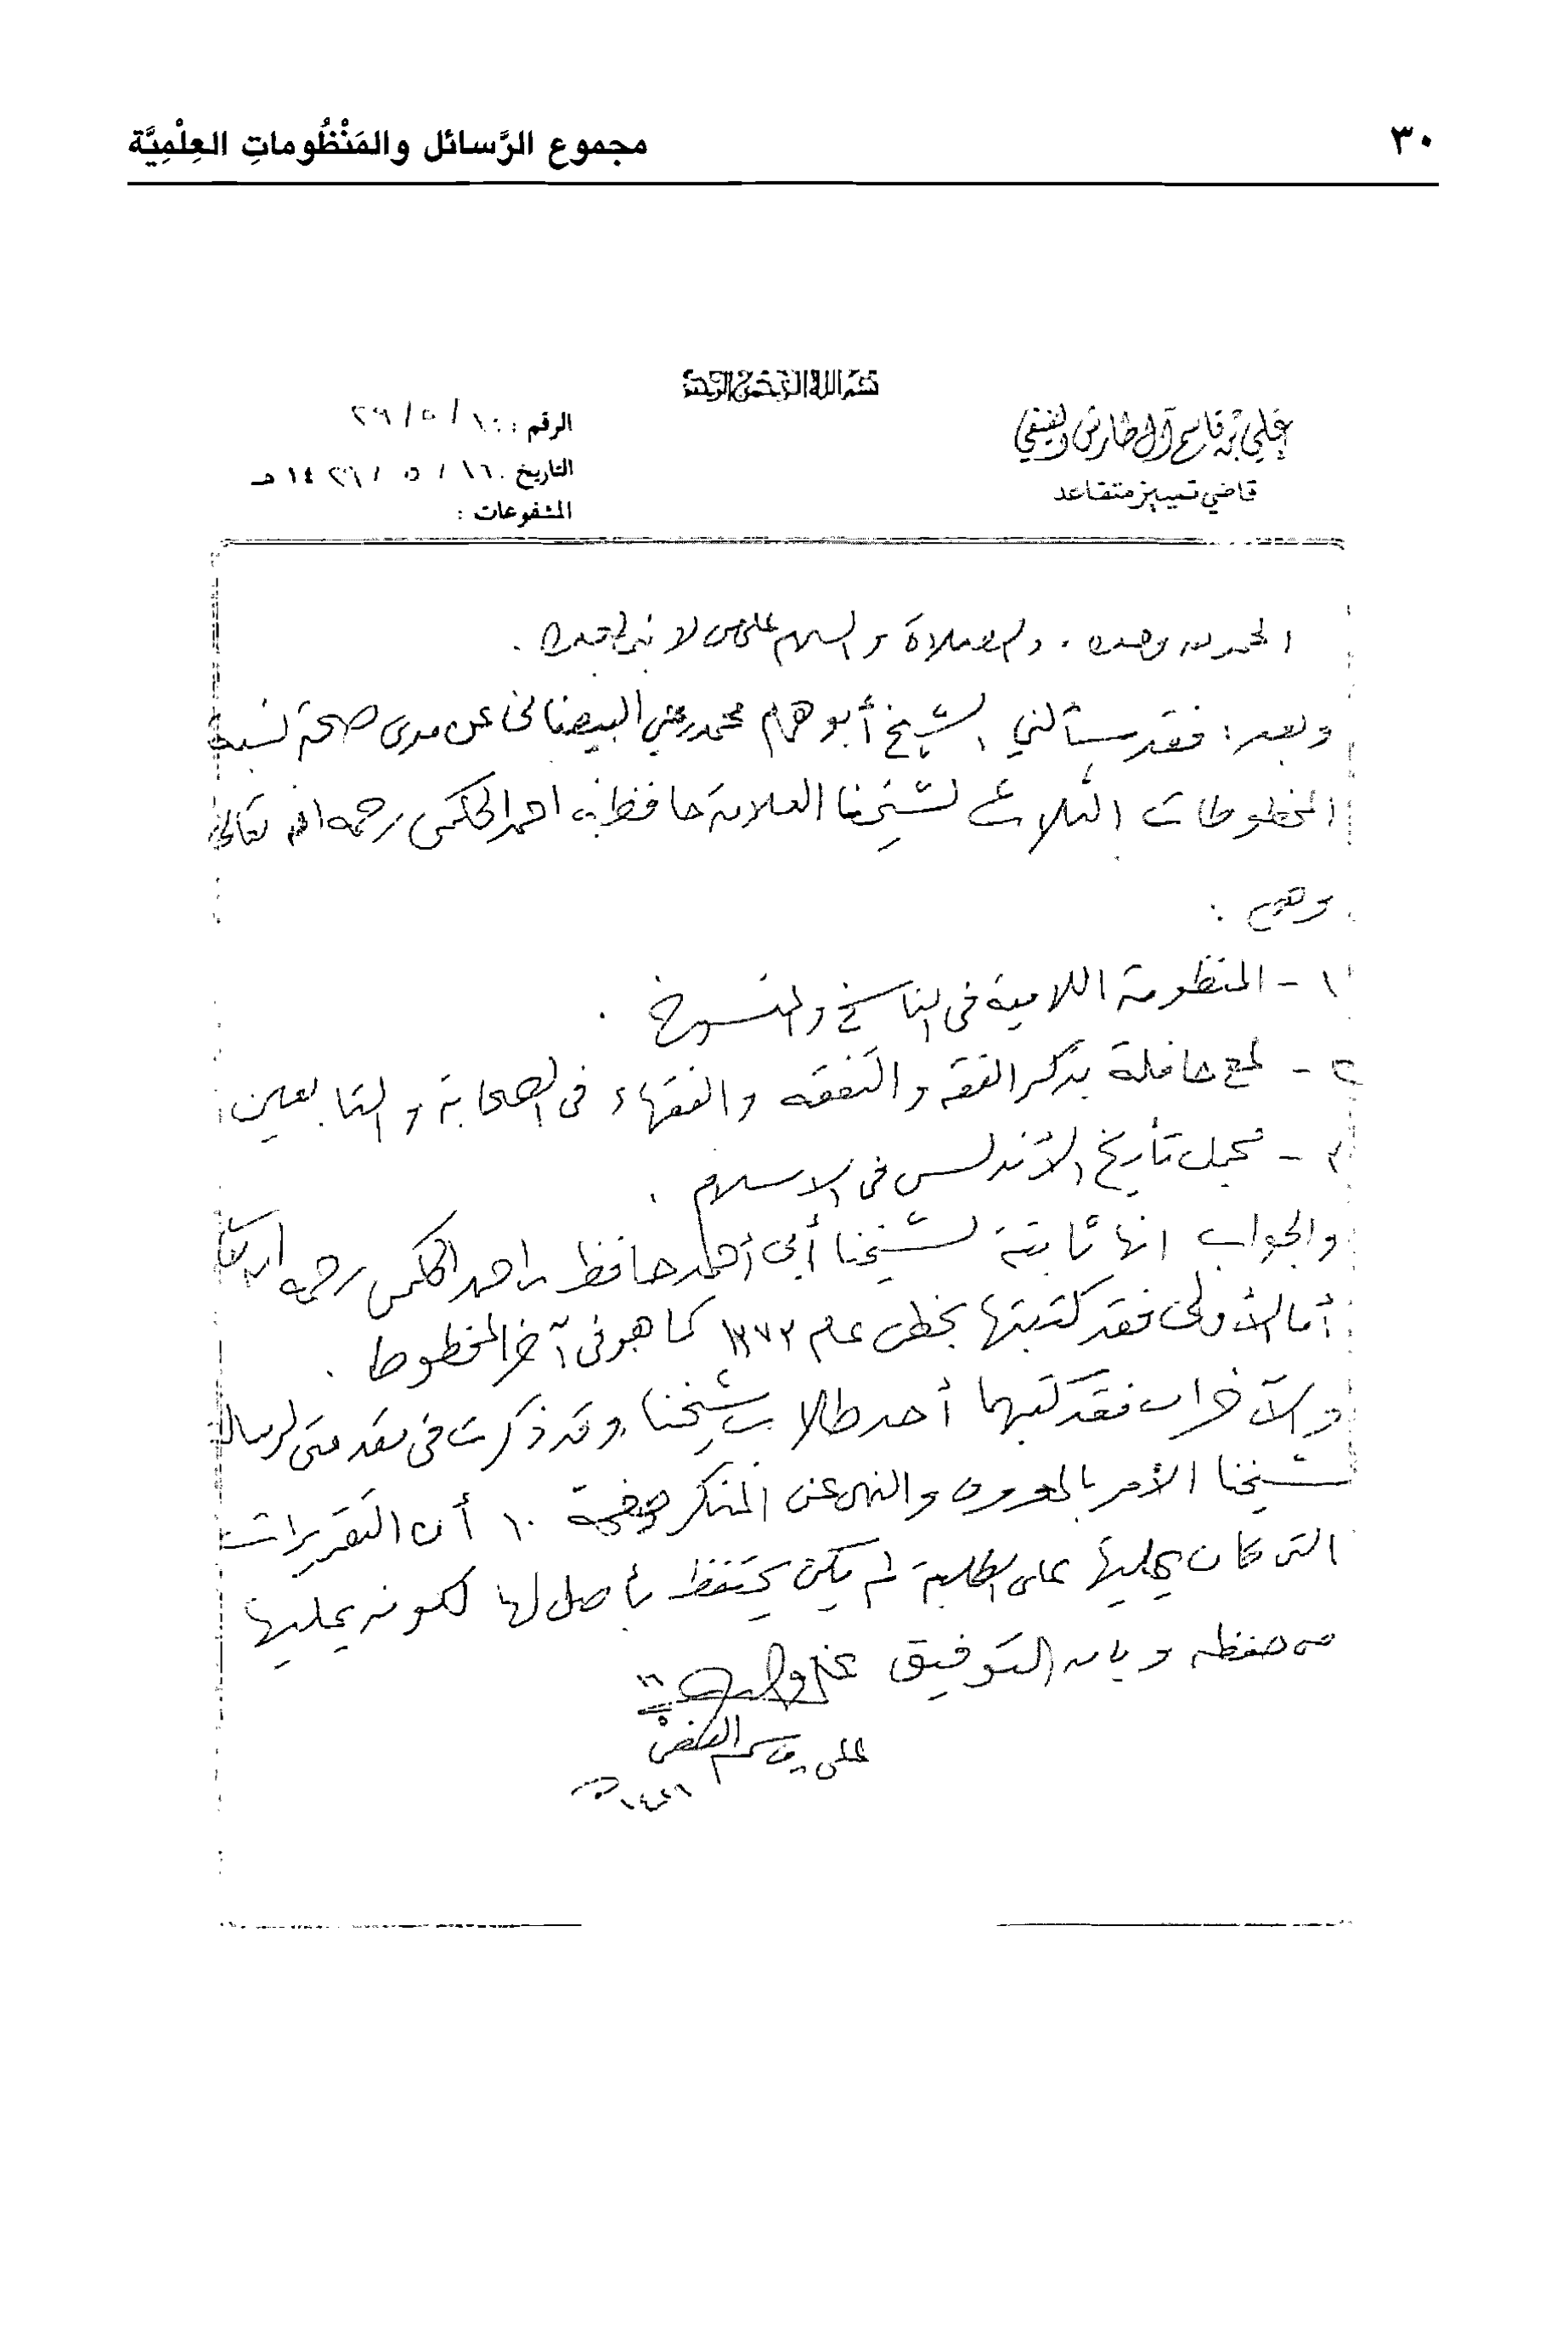 ٣٠
مجموع الرَّسائل والمَنْظُوماتِ العِلْمِيَّة
بسم الله الرحمن الرحيم
علي بن قاسم آل طارش الفيفي
قاضي تمييز متقاعد
الرقم :
التاريخ ١٦ / ٥ / ١٤٢٩ هـ
المشفوعات :
الحمد لله وحده . والصلاة والسلام على من لا نبي بعده .
وبعد : فقد سألني الشيخ أبو همام محمد بن علي البيضاني عن مدى صحة نسبة
المخطوطات الثلاث لشيخنا العلامة حافظ بن احمد الحكمي رحمه الله تعالى
وهي :
١ - المنظومة اللامية في الناسخ والمنسوخ .
٢ - لمع حافلة بذكر الفقه والتفقه والفقهاء في الصحابة والتابعين .
٣ - مجمل تأريخ الأندلس في الاسلام .
والجواب انها ثابتة لشيخنا أبي أحمد حافظ بن احمد الحكمي رحمه الله تعالى
أما الأولى فقد كتبتها بخطي عام ١٣٧٣ كما هو في آخر المخطوط .
والآخران فقد كتبهما أحد طلاب شيخنا وقد ذكرت في مقدمتي لرسالة
شيخنا الأمر بالمعروف والنهي عن المنكر صفحة ١٠ أن التقريرات
التي كان يمليها على الطلبة لم يكن يحتفظ بأصل لها لكونه يمليها
من حفظه وبالله التوفيق
علي بن قاسم الفيفي